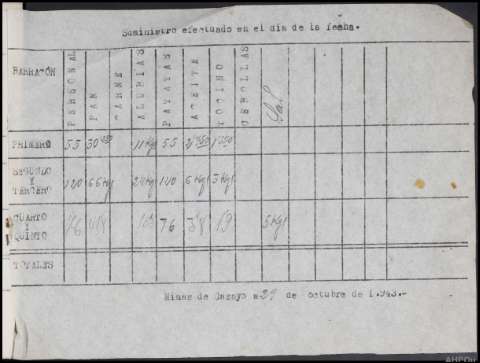 Suministro efectuado en el dia de la fecha.
BARRACÓN PERSONAL PAN CARNE ALUBIAS PATATAS ACEITE TOCINO CEBOLLAS Sal
PRIMERO 55 30 11 Kg 55
SEGUNDO
Y
TERCERO 120 66 Kg 24 Kg 120 6 Kg 3 Kg
CUARTO
Y
QUINTO 76 5 Kg
TOTALES
Minas de Casayo a 29 de octubre de 1.943.-
AHPOu